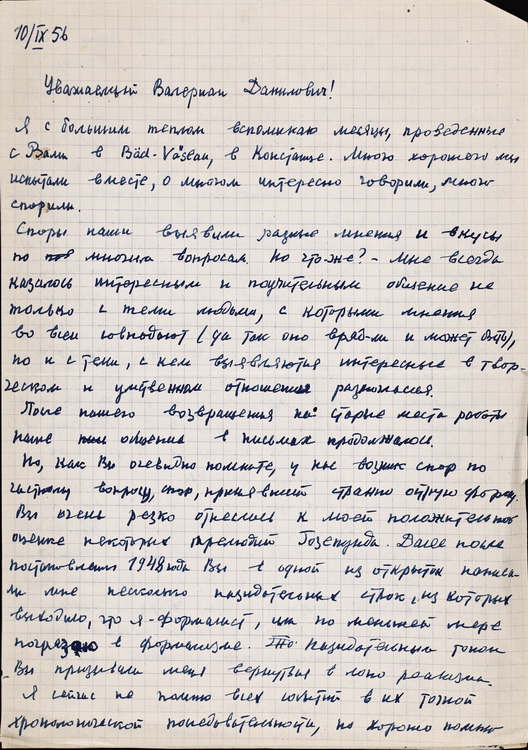 10/IX 56
Уважаемый Валериан Данилович!
Я с большим теплом вспоминаю месяцы, проведенные
с Вами в Bäd-Vöslau, в Констанце. Много хорошего мы
испытали вместе, о многом интересно говорили, много
спорили.
Споры наши выявили разные мнения и вкусы
по многим вопросам. Но что же? – Мне всегда
казалось интересным и поучительным общение не
только с теми людьми, с которыми мнения
во всем совпадают (да так оно вряд-ли и может быть),
но и с теми, с кем выявляются интересные в твор-
ческом и умственном отношении разногласия.
После нашего возвращения на старые места работы
наше общение в письмах продолжалось.
Но, как Вы очевидно помните, у нас возник спор по
частному вопросу, спор, принявший странно острую форму.
Вы очень резко отнеслись к моей положительной
оценке некоторых прелюдий Гозенпуда. Далее после
постановления 1948 года Вы в одной из открыток написа-
ли мне несколько назидательных строк, из которых
выходило, что я – формалист, или по меньшей мере
погрязаю в формализме. Назидательным тоном
Вы призывали меня вернуться в лоно реализма.
Я сейчас не помню всех событий в их точной
хронологической последовательности, но хорошо помню